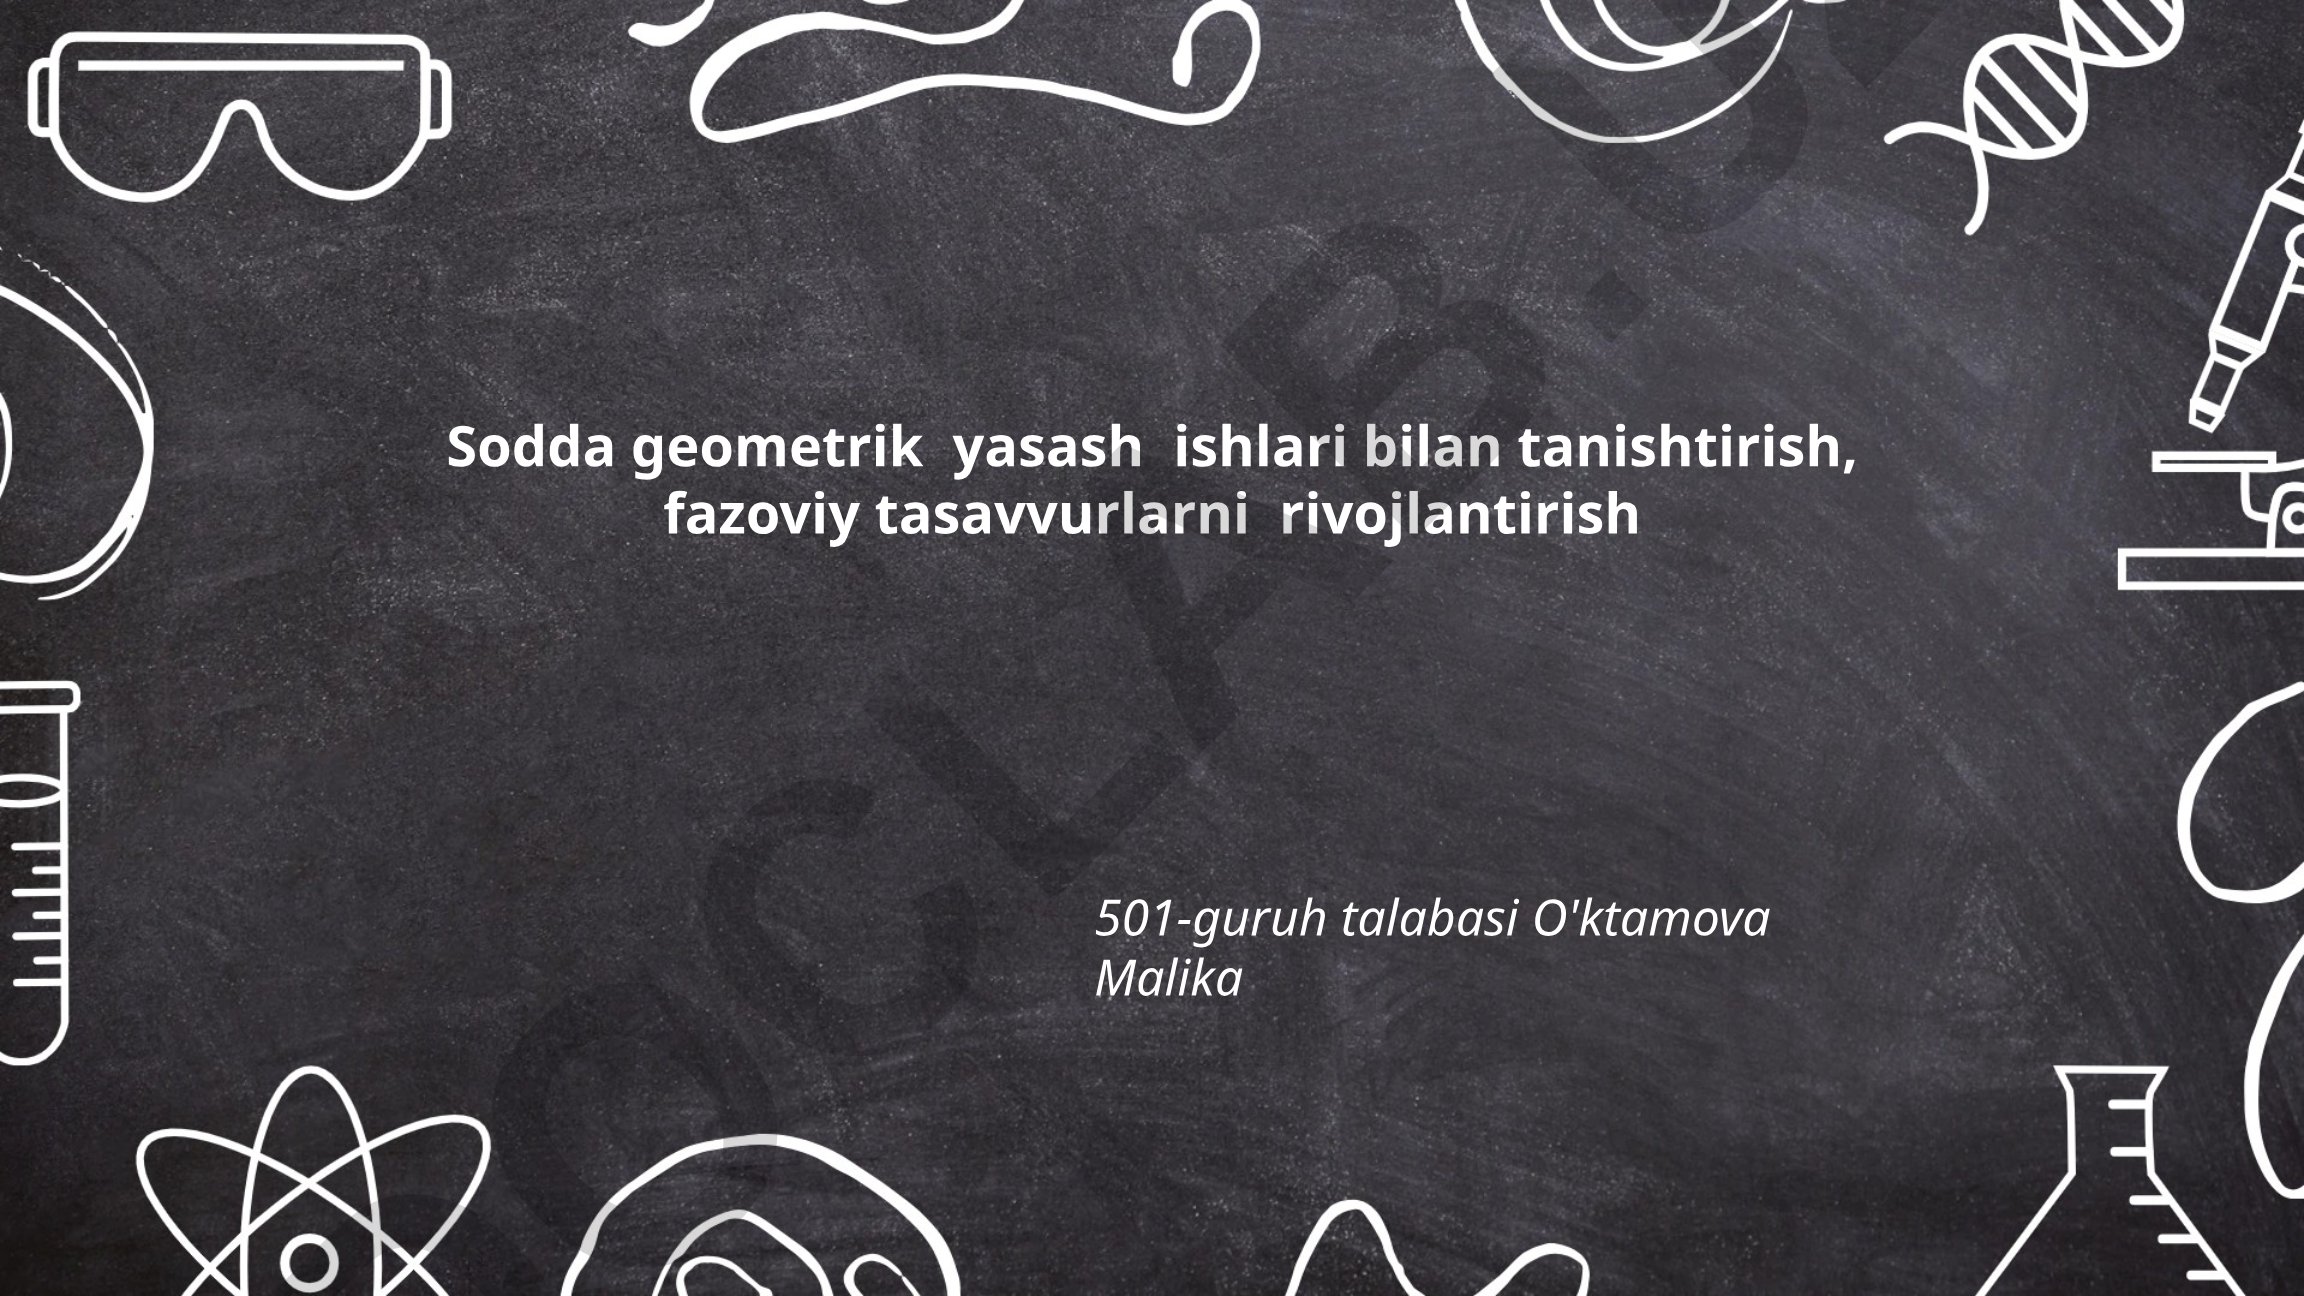 Sodda geometrik yasash ishlari bilan tanishtirish,
fazoviy tasavvurlarni rivojlantirish
501-guruh talabasi O'ktamova
Malika